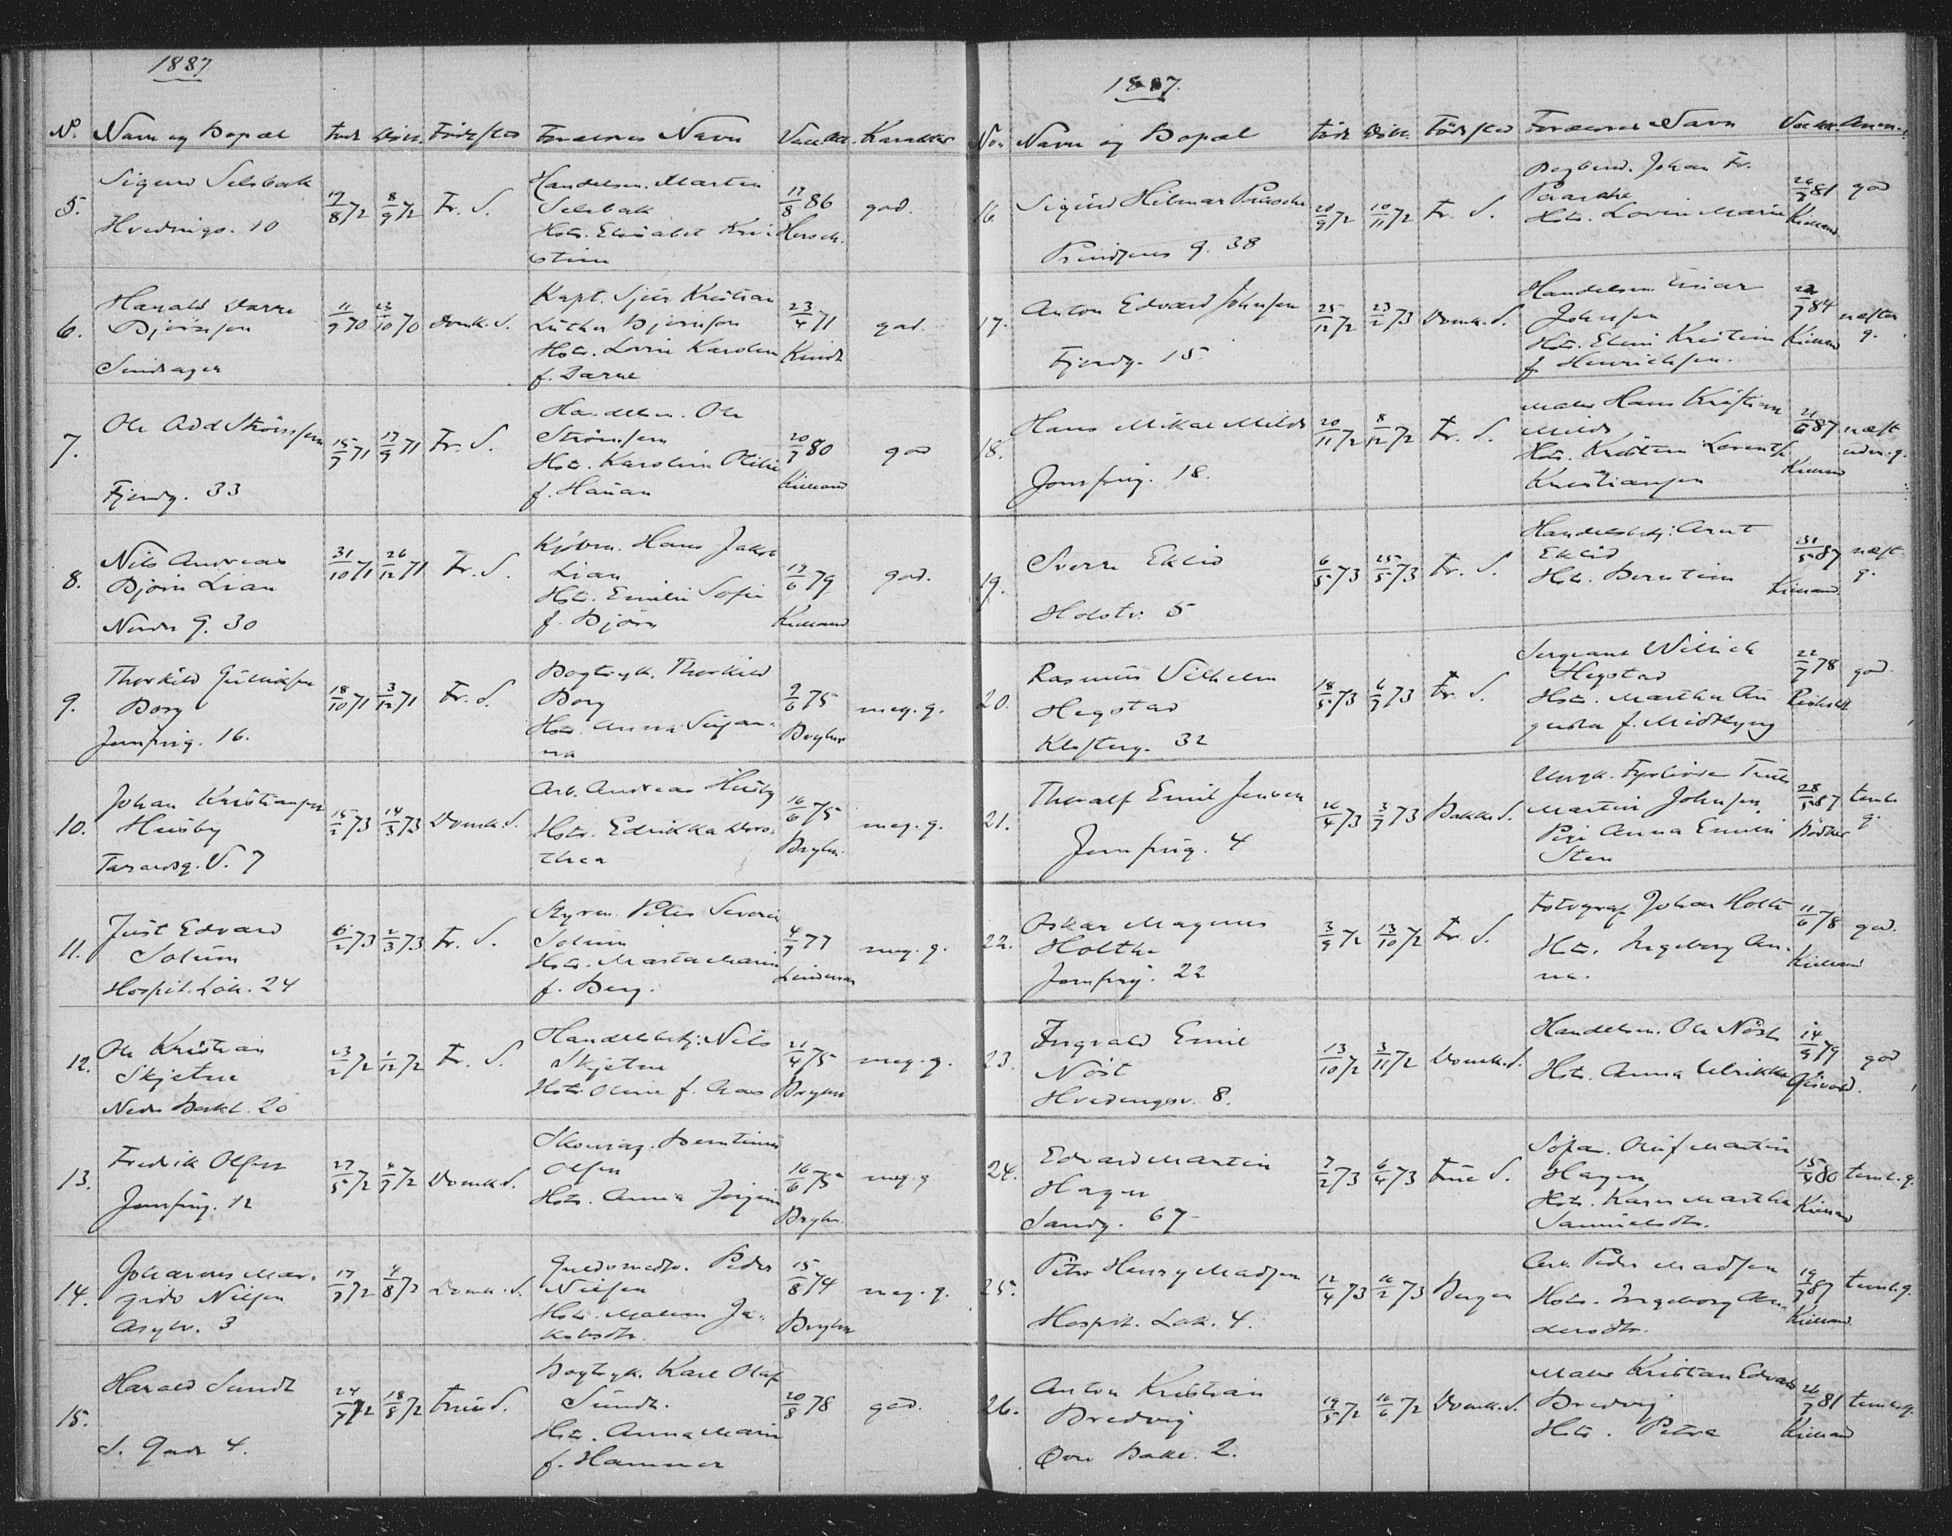 1887
No. Navn og Bopæl Født Døbt Fødested Forældres Navn Vacc.att. Karakter
5. Sigurd Selsbak
Hvedings. 10
19/8 72 8/9 72 Fr. S.
Handelsm. Martin
Selsbak
Hstr. Elisabet Kri-
stine
17/8 86
god.
6. Harald Darre
Bjørnson
11/9 70 23/10 70 Domk. S.
Kapt. Sjur Kristian
Lüther Bjørnson
Hstr. Lovine Karoline
f. Darre
23/4 71
Kindt
god.
7. Ole Odd Strömsem
Fjordg. 33
15/7 71 17/9 71 Fr. S.
Handelsm. Ole
Strömsem
Hstr. Karoline Otilie
f. Hauan
20/7 80
Kielland
god
8. Nils Andreas
Björn Lian
Nordr G. 30
31/10 71 26/12 71 Fr. S.
Kjöbm. Hans Jakob
Lian
Hstr. Emilie Sofie
f. Björn
17/6 79
Kielland
god.
9. Thorkild
Borg
Jomfrug. 16.
18/10 71 3/12 71 Fr. S.
Bogtryk. Thorkild
Borg
Hstr. Anna Sirian-
na
2/6 75
meg. g.
10. Johan Kristiansen
Husby
V. 7
14/3 73 Domk. S.
Arb. Andreas Husby
Hstr. Edrikka Doro-
thea
16/6 75
meg. g.
11. Just Edvard
Solum
Hospit. Lök. 24
6/2 73 2/3 73 Fr. S.
Styrm. Peter Severin
Solum
Hstr. Marta Marie
f. Berg.
4/9 77
Lindeman
meg. g.
12. Ole Kristian
Skjetne
Nedr Bakl. 20
Fr. S.
Handelsbetj. Nils
Skjetne
Hstr. Oline f. Aas
21/4 75
meg. g.
13. Fredrik Olsen
Jomfrug. 12
27/5 72 Domk. S.
Berntinus
Olsen
Hstr. Anna Jörgine
16/6 75
meg. g
14. Johannes Mar-
Nilsen
Asylv. 3
17/7 72 4/8 72 Domk. S.
Guldsmedsv. Peder
Nilsen
Hstr. Ja-
kobsdtr.
15/8 74
meg. g.
15. Harald Sundt
S. Gade 4.
24/7 72 18/8 72 Frue S.
Bogtryk. Karl Olaf
Sundt.
Hstr. Anna Marie
f. Hammer
20/8 78
god.
1887.
No. Navn og Bopæl Født Döbt Födested Forældres Navn Vacc. att. Anm.
16. Sigurd Hilmar Paasche
Prindsens g. 38
10/11 72 Fr. S.
Bogbind. Johan Fr.
Paasche
Hstr. Lovine Marie
26/7 81
Kielland
god
17. Anton Edvard Johnsen
Fjordg. 15.
25/12 72 23/2 73 Domk. S.
Handelsm. Einar
Johnsen
Hstr. Eline Kristine
f. Henriksen.
Kielland
næsten
g.
18. Hans Mikal Milde
Jomfrug. 18.
20/11 72 8/12 72 Fr. S.
Maler Hans Kristian
Milde
Hstr. Kristine Lorentse
Kristiansen
21/6 87
Kielland
næst
udm. g.
19. Sverre Eklid
Holstv. 5
6/5 73 25/5 73 Fr. S.
Handelsbetj. Arnt
Eklid
Hstr. Berntine
31/5 87
Kielland
næst
g.
20. Rasmus Vilhelm
Hegstad
Klosterg. 32
18/5 73 6/7 73 Fr. S.
Sergeant Willich
Hegstad
Hstr. Martha Au
gusta f. Midtlyng
22/7 78
god
21. Thoralf Emil Jensen
Jomfrug. 4
16/4 73 Bakke S.
Ungk. Fyrböder
Martin Johnsen
Pige Anna Emilie
Sten
28/5 87
Bödtker
teml.
g.
22. Oskar Magnus
Holthe
Jomfrug. 22
3/9 72 13/10 72 Fr. S.
Fotograf Johan Holthe
Hstr. Ingeborg An-
na.
11/6 78
Kielland
god.
23. Ingvald Emil
Nöst
Hvedingsv. 8.
13/10 72 3/11 72 Domk. S.
Handelsm. Ole Nöst
Hstr. Anna Ulrikke
14/9 79
god
24. Edvard Martin
Hagen
Sandg. 67
2/2 73 6/4 73 Frue S.
Söfar. Oluf Martin
Hagen
Hstr. Karen Martha
Samuelsdtr.
15/9 80
Kielland
teml. g.
25. Peter Henry Madsen
Hospit. Lök. 4.
Bergen
Arb. Peder Madsen
Hstr. Ingeborg An-
dersdtr.
19/7 87
Kielland
teml. g.
26. Anton Kristian
Bredvig
Övre Bakl. 2.
19/5 72 16/6 72 Domk. S.
Maler Kristian Edvard
Bredvig
Hstr. Petra
26/7 81
Kielland
teml. g.